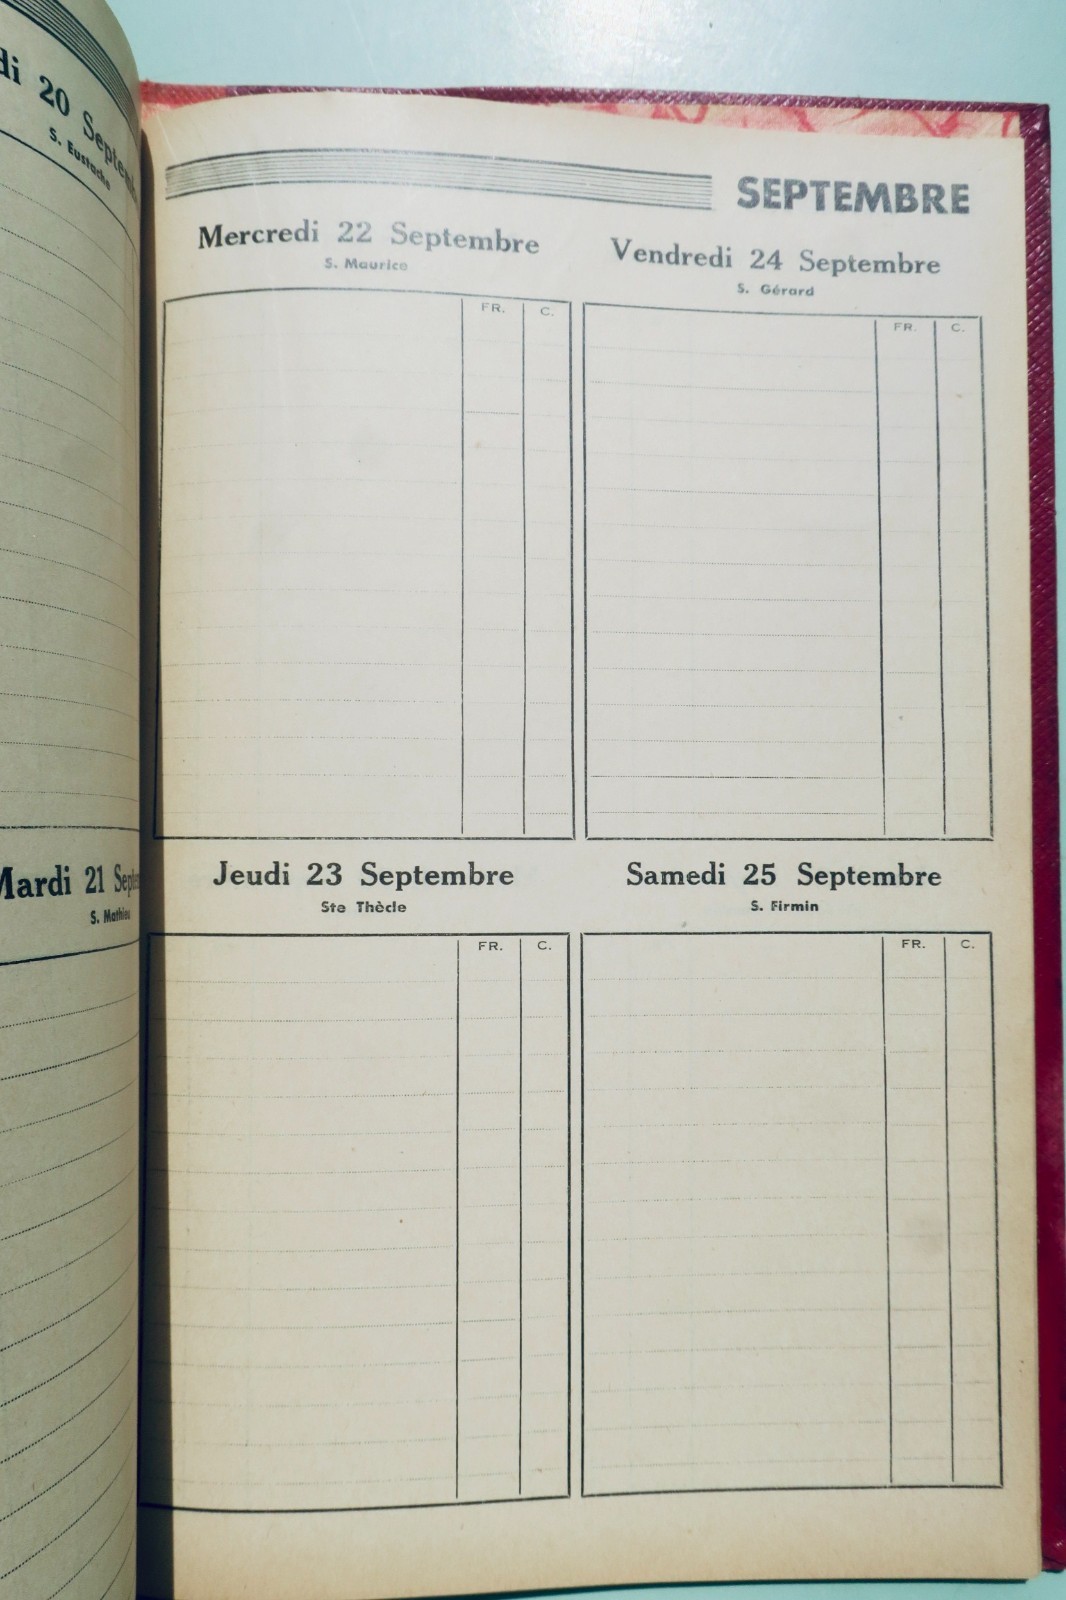 di 20 Septem
S. Eustache
Mardi 21 Septe
S. Mathieu
SEPTEMBRE
Mercredi 22 Septembre
S. Maurice
FR. C.
Vendredi 24 Septembre
S. Gérard
FR. C.
Jeudi 23 Septembre
Ste Thècle
FR. C.
Samedi 25 Septembre
S. Firmin
FR. C.